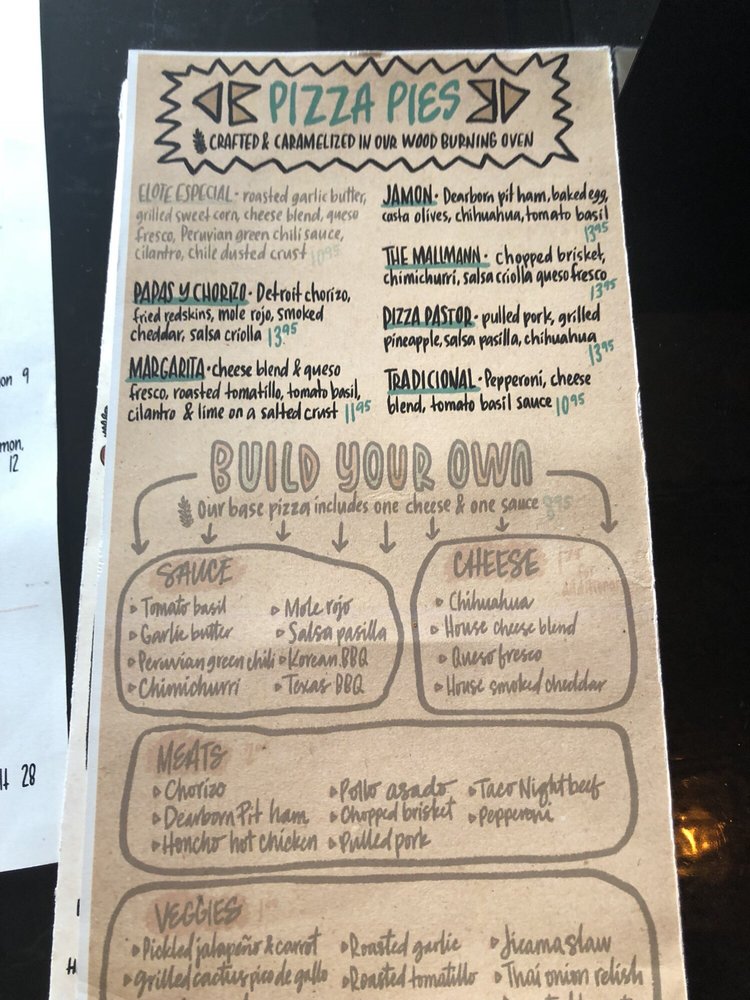 PIZZA PIES
CRAFTED & CARAMELIZED IN OUR WOOD BURNING OVEN
ELOTE ESPECIAL • roasted garlic butter,
grilled sweet corn, cheese blend, queso
fresco, Peruvian green chili sauce,
cilantro, chile dusted crust 10⁹⁵
PAPAS Y CHORIZO • Detroit chorizo,
fried redskins, mole rojo, smoked
cheddar, salsa criolla 13⁹⁵
MARGARITA • cheese blend & queso
fresco, roasted tomatillo, tomato basil,
cilantro & lime on a salted crust 11⁹⁵
JAMON • Dearborn pit ham, baked egg,
casta olives, chihuahua, tomato basil
13⁹⁵
THE MALLMANN • chopped brisket,
chimichurri, salsa criolla queso fresco
13⁹⁵
PIZZA PASTOR • pulled pork, grilled
pineapple, salsa pasilla, chihuahua
13⁹⁵
TRADICIONAL • Pepperoni, cheese
blend, tomato basil sauce 10⁹⁵
BUILD YOUR OWN
Our base pizza includes one cheese & one sauce 8⁹⁵
SAUCE
Tomato basil
Garlic butter
Peruvian green chili
Chimichurri
Mole rojo
Salsa pasilla
Korean BBQ
Texas BBQ
CHEESE
for
additional
Chihuahua
House cheese blend
Queso fresco
House smoked cheddar
MEATS
Chorizo
Dearborn Pit ham
Honcho hot chicken
Pollo asado
Chopped brisket
Pulled pork
Taco Night beef
Pepperoni
VEGGIES
Pickled jalapeño & carrot
Grilled cactus pico de gallo
Roasted garlic
Roasted tomatillo
Jicama slaw
Thai onion relish
on 9
mon,
12
28